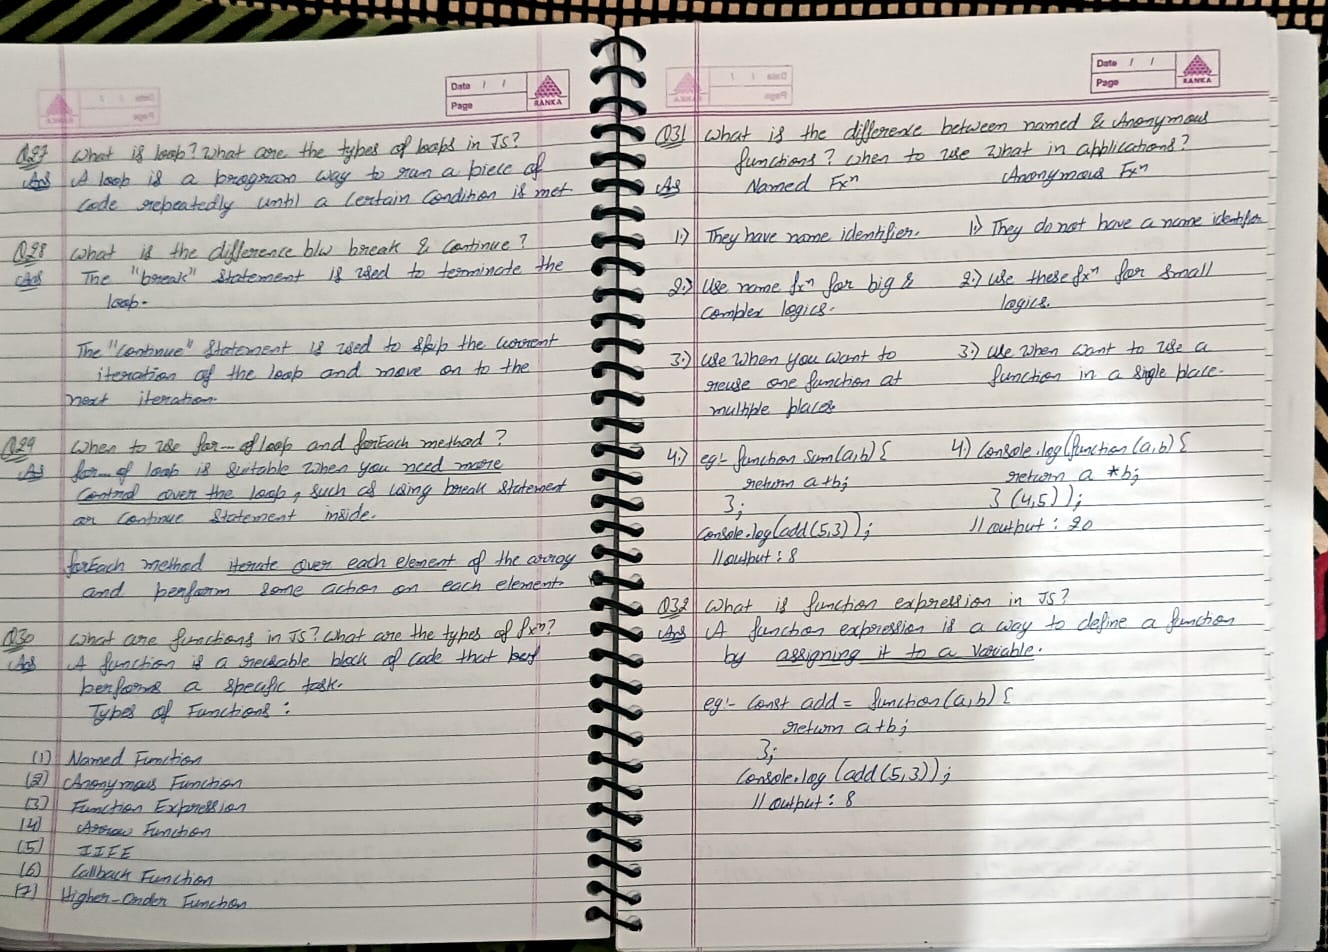 Date / /
Page
RANKA
Q27 What is loop? What are the types of loops in JS?
Ans A loop is a program way to run a piece of
code repeatedly until a certain condition is met
Q28 What is the difference b/w break & continue?
Ans The "break" statement is used to terminate the
loop.
The "continue" statement is used to skip the current
iteration of the loop and move on to the
next iteration.
Q29 When to use for...of loop and forEach method?
Ans for...of loop is suitable when you need more
control over the loop, such as using break statement
or continue statement inside.
forEach method iterate over each element of the array
and perform some action on each element.
Q30 What are functions in JS? What are the types of fxⁿ?
Ans A function is a reusable block of code that
performs a specific task.
Types of Functions:
(1) Named Function
(2) Anonymous Function
(3) Function Expression
(4) Arrow Function
(5) IIFE
(6) Callback Function
(7) Higher-Order Function
Date / /
Page
RANKA
Q31 What is the difference between named & Anonymous
functions? When to use what in applications?
Ans Named Fxⁿ Anonymous Fxⁿ
1.) They have name identifier. 1.) They do not have a name identifier
2.) Use name fxⁿ for big & 2.) Use these fxⁿ for small
complex logics. logics.
3.) Use when you want to 3.) Use when want to use a
reuse one function at function in a single place.
multiple places
4.) eg:- function Sum(a,b){ 4.) Console.log(function(a,b){
return a+b; return a *b;
}; }(4,5));
Console.log(add(5,3)); // output: 20
// output: 8
Q32 What is function expression in JS?
Ans A function expression is a way to define a function
by assigning it to a variable.
eg:- Const add = function(a,b){
return a+b;
};
Console.log (add(5,3));
// output: 8